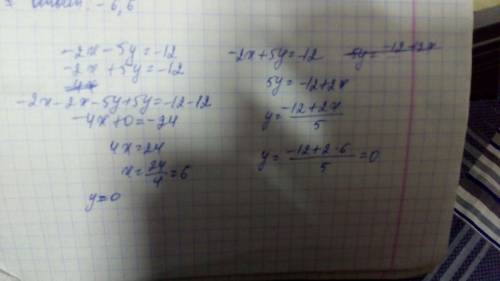 Ответ: -6,6
-2x-5y=-12
-2x+5y=-12
-2x-2x-5y+5y=-12-12
-4x+0=-24
4x=24
x=24/4=6
y=0
-2x+5y=-12
5y=-12+2x
5y=-12+2x
y=-12+2x/5
y=-12+2·6/5=0